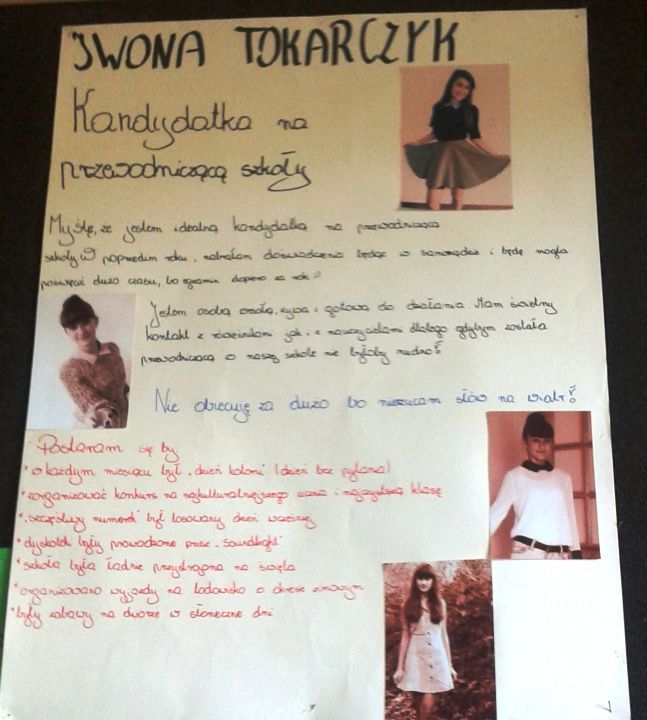 IWONA TOKARCZYK
Kandydatka na
przewodniczącą szkoły
Myślę, że jestem idealną kandydatką na przewodniczącą
szkoły. W poprzednim roku, nabrałam doświadczenia będąc w samorządzie i będę mogła
poświęcić dużo czasu, bo egzamin dopiero za rok :)
Jestem osobą wesołą, żywą i gotową do działania. Mam świetny
kontakt z rówieśnikami jak i z nauczycielami dlatego gdybym została
przewodniczącą w naszej szkole nie byłoby nudno!
Nie obiecuję za dużo bo nie rzucam słów na wiatr!
Postaram się by
*w każdym miesiącu był "dzień koloru" (dzień bez pytania)
*zorganizować konkurs na najkulturalniejszego ucznia i najczystszą klasę
*"szczęśliwy numerek" był losowany dzień wcześniej
*dyskoteki były prowadzone przez "Soundlight"
*szkoła była ładnie przystrojona na święta
*organizowano wyjazdy na lodowisko w okresie zimowym
*były zabawy na dworze w słoneczne dni